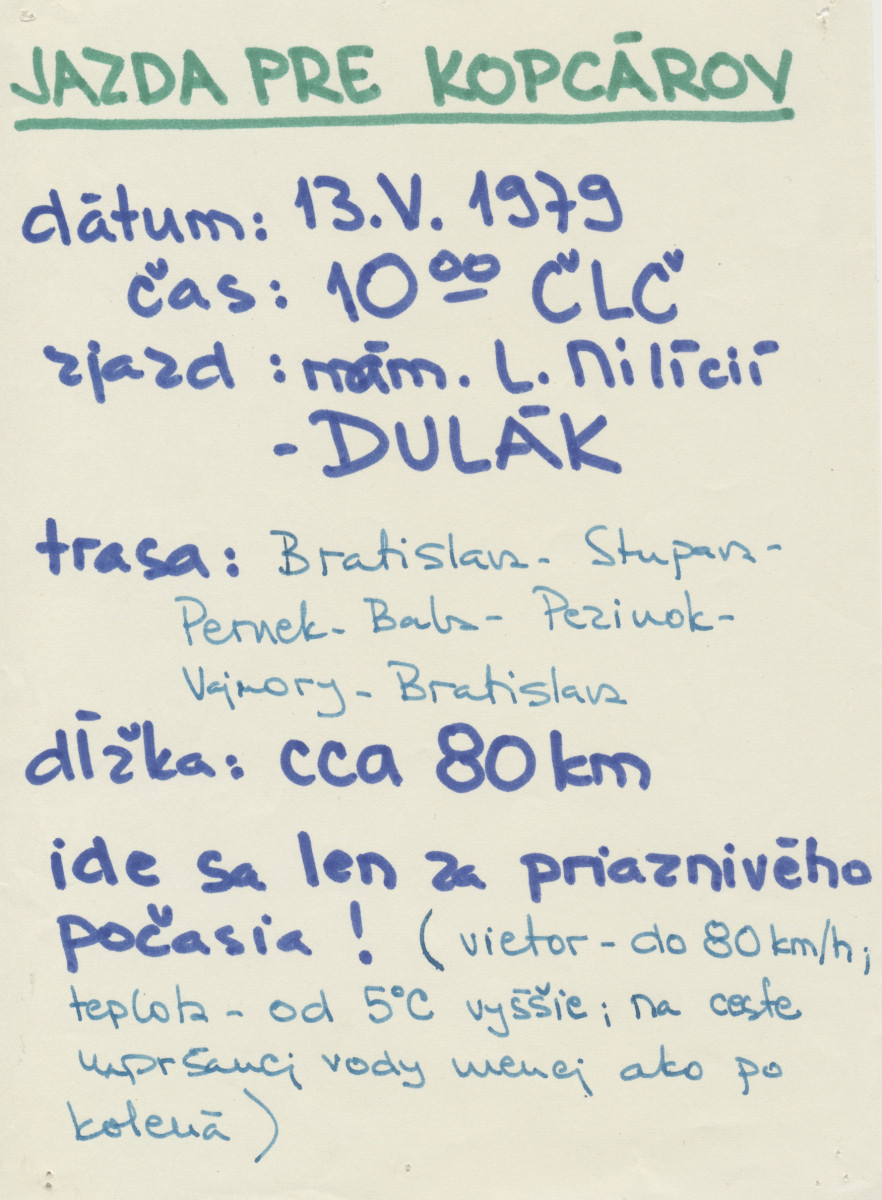 JAZDA PRE KOPCÁROV
dátum: 13.V. 1979
čas: 10⁰⁰ ČLČ
zjazd: nám. L. Milícií
- DULÁK
trasa: Bratislava - Stupava -
Pernek - Baba - Pezinok -
Vajnory - Bratislava
dĺžka: cca 80 km
ide sa len za priaznivého
počasia! (vietor - do 80 km/h;
teplota - od 5°C vyššie; na ceste
napršanej vody menej ako po
kolená)